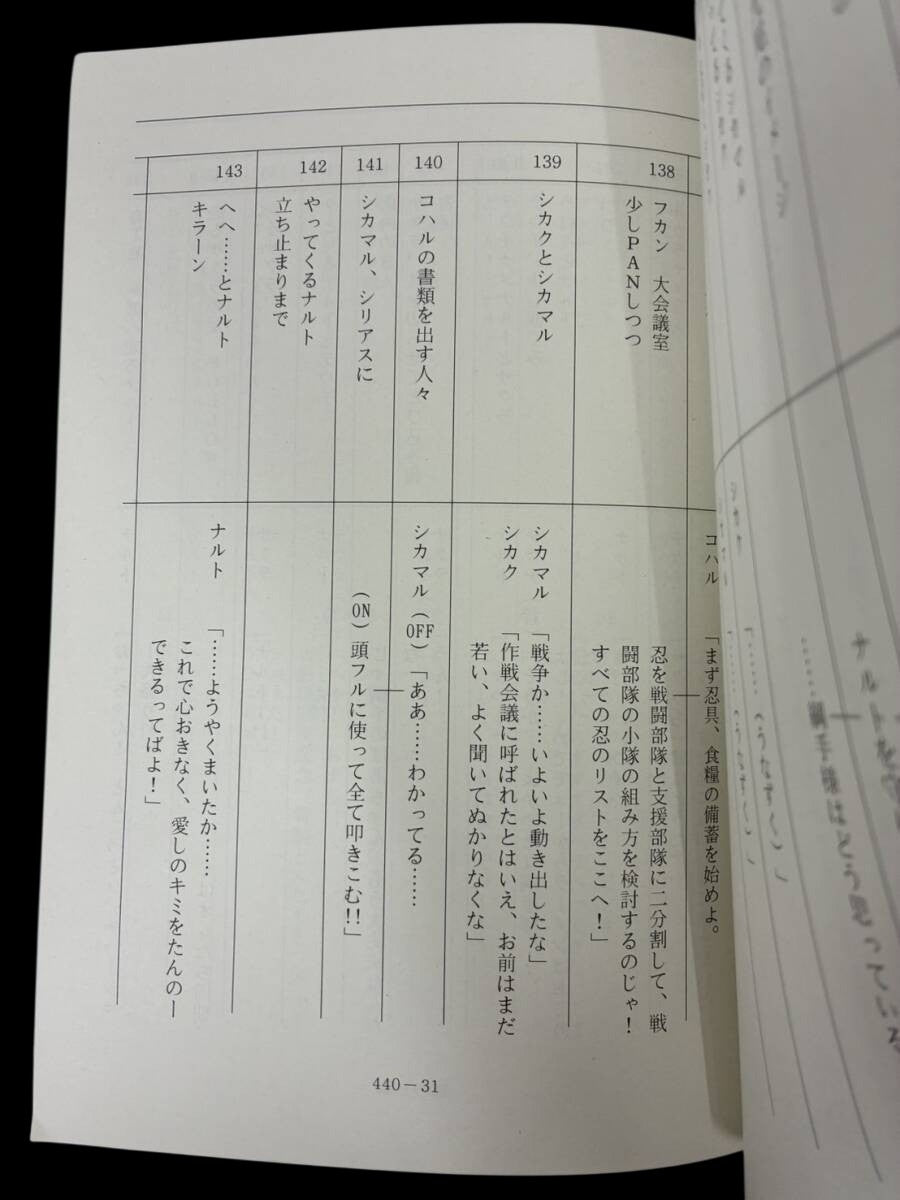 コハル 「まず忍具、食糧の備蓄を始めよ。
138
フカン 大会議室
少しPANしつつ
忍を戦闘部隊と支援部隊に二分割して、戦
闘部隊の小隊の組み方を検討するのじゃ！
すべての忍のリストをここへ！」
139
シカクとシカマル
シカマル 「戦争か……いよいよ動き出したな」
シカク 「作戦会議に呼ばれたとはいえ、お前はまだ
若い、よく聞いてぬかりなくな」
140
コハルの書類を出す人々
シカマル（OFF）「ああ……わかってる……
141
シカマル、シリアスに
（ON）頭フルに使って全て叩きこむ!!」
142
やってくるナルト
立ち止まりまで
143
へへ……とナルト
キラーン
ナルト 「……ようやくまいたか……
これで心おきなく、愛しのキミをたんのー
できるってばよ！」
440－31